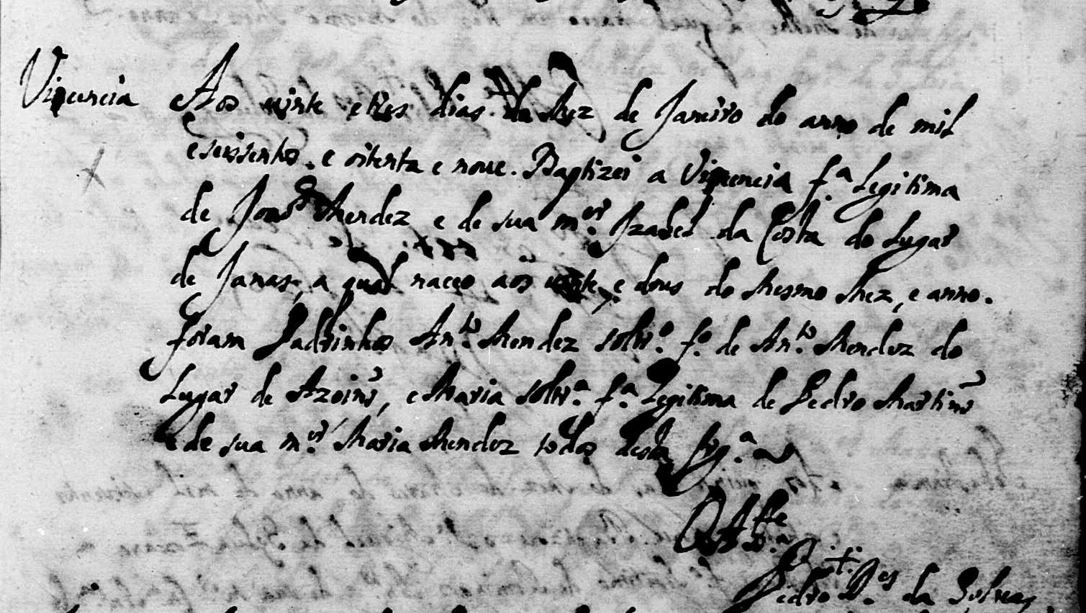 Vicencia
Aos vinte e tres dias do Mez de Janeiro do anno de mil
e seissentos e oitenta e noue. Baptizei a Vicencia f.ª Legitima
de Mendez e de sua m.er Izabel da Costa do Lugar
de Janas, a qual naceo aos vinte e dous do Mesmo Mez, e anno.
foram Padrinhos An.to Mendez soltr.º f.º de An.to Mendez do
Lugar de e Maria soltr.ª f.ª Legitima de Pedro Martins
e de sua m.er Maria Mendez todos desta frg.ª
Pedro da